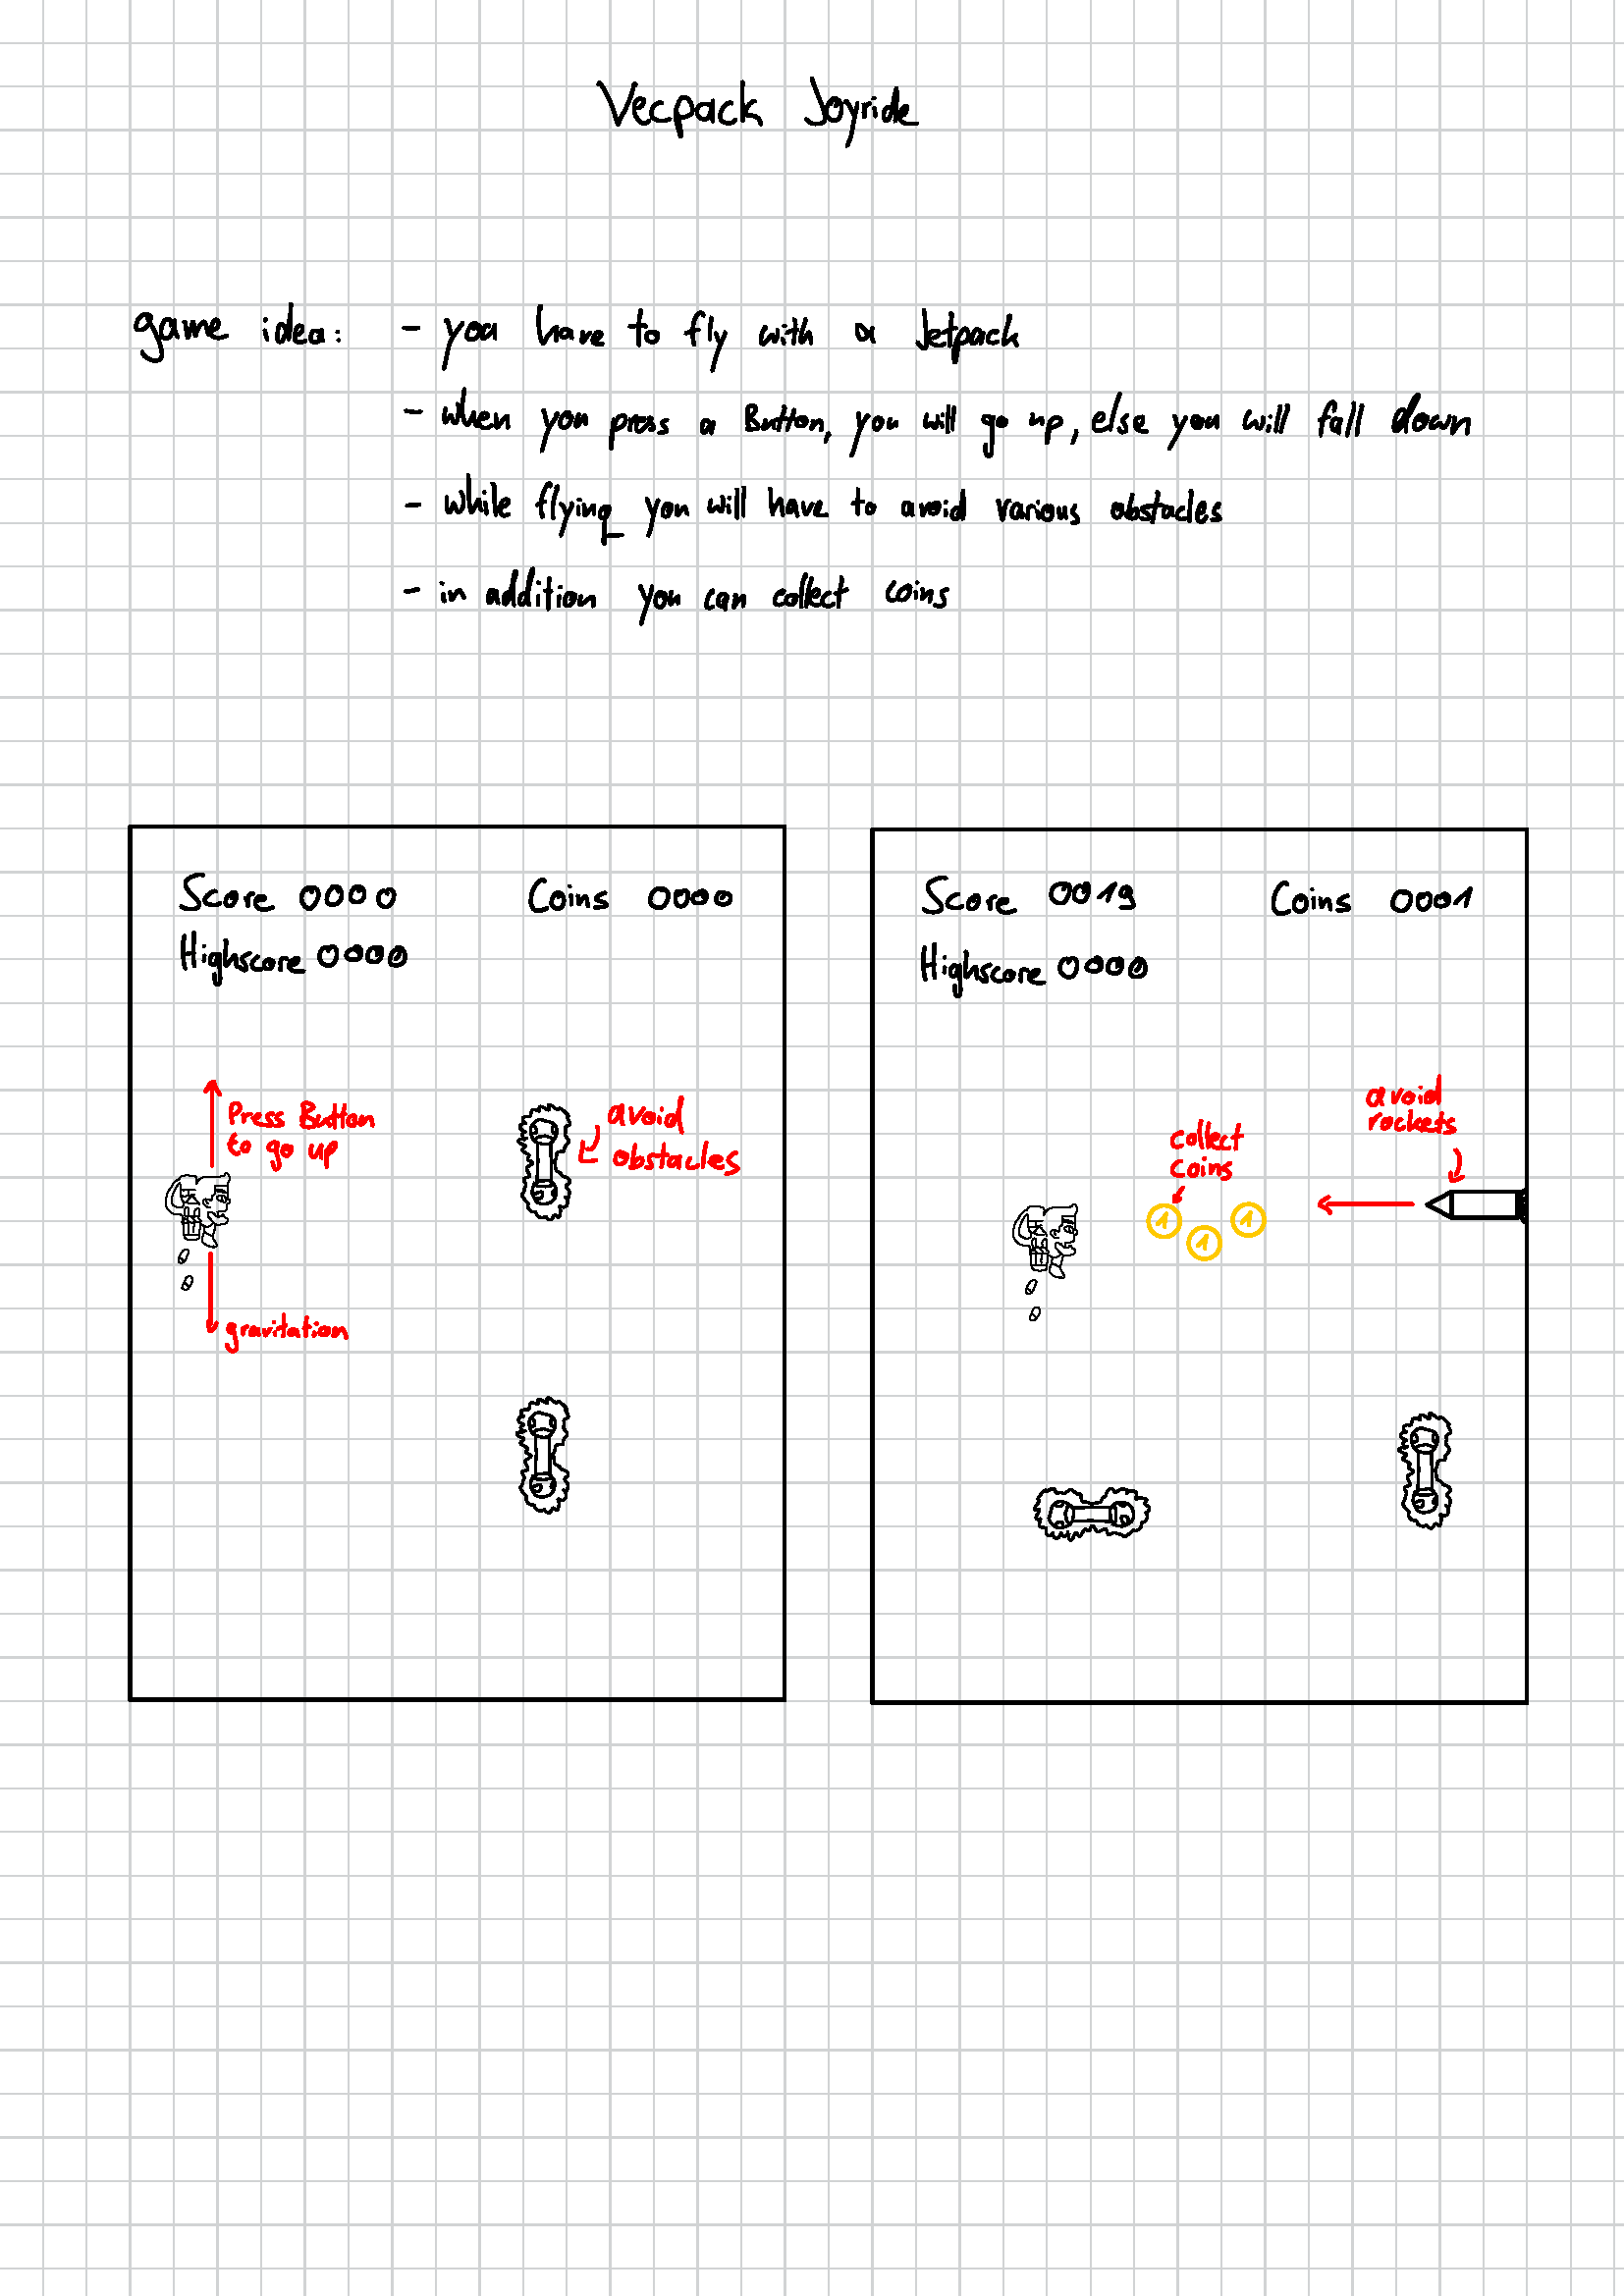 Vecpack Joyride
game idea: - you have to fly with a Jetpack
- when you press a Button, you will go up, else you will fall down
- while flying you will have to avoid various obstacles
- in addition you can collect coins
Score 0000 Coins 0000
Highscore 0000
Press Button
to go up
avoid
obstacles
gravitation
Score 0019 Coins 0001
Highscore 0000
avoid
rockets
collect
coins
1 1 1